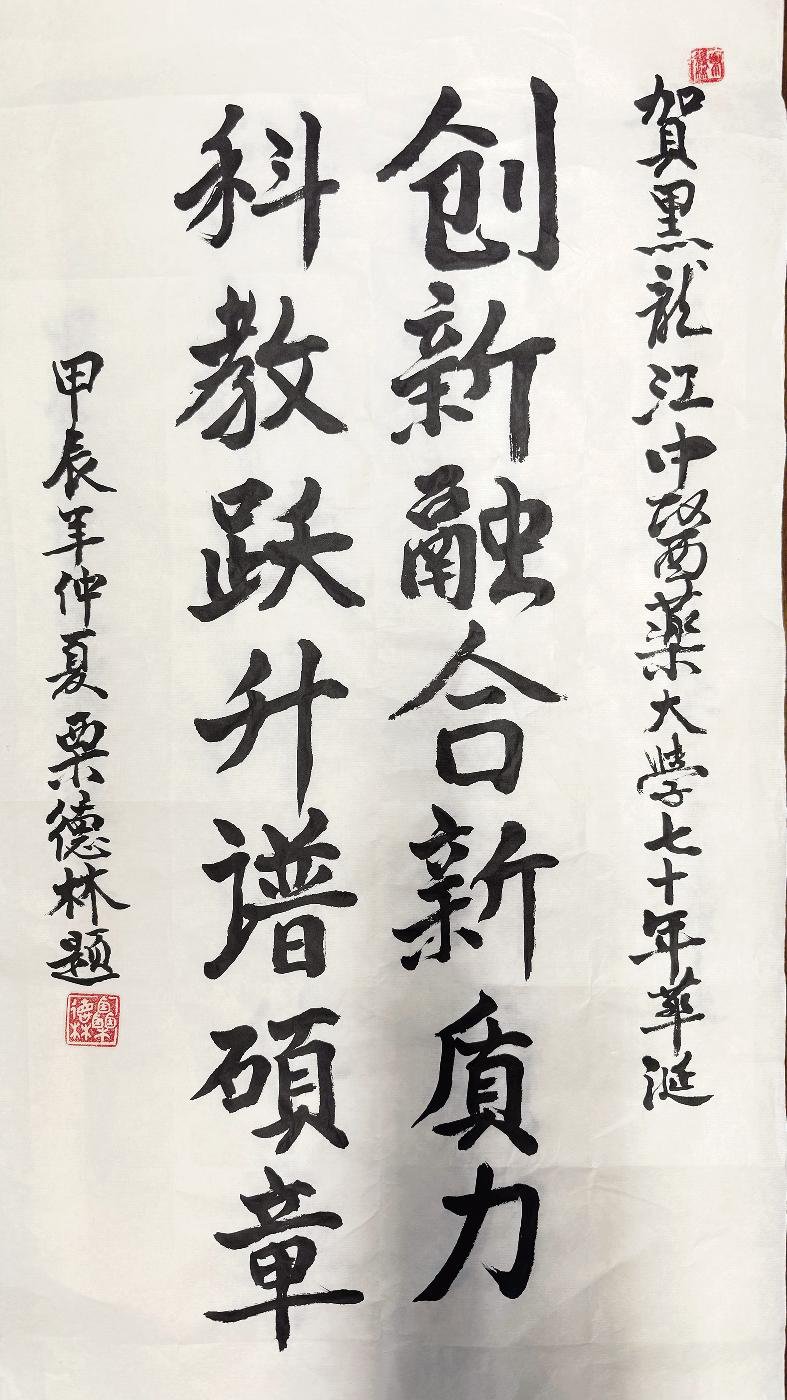 賀黑龍江中醫藥大學七十年華诞
创新融合新质力
科教跃升谱碩章
甲辰年仲夏栗德林题